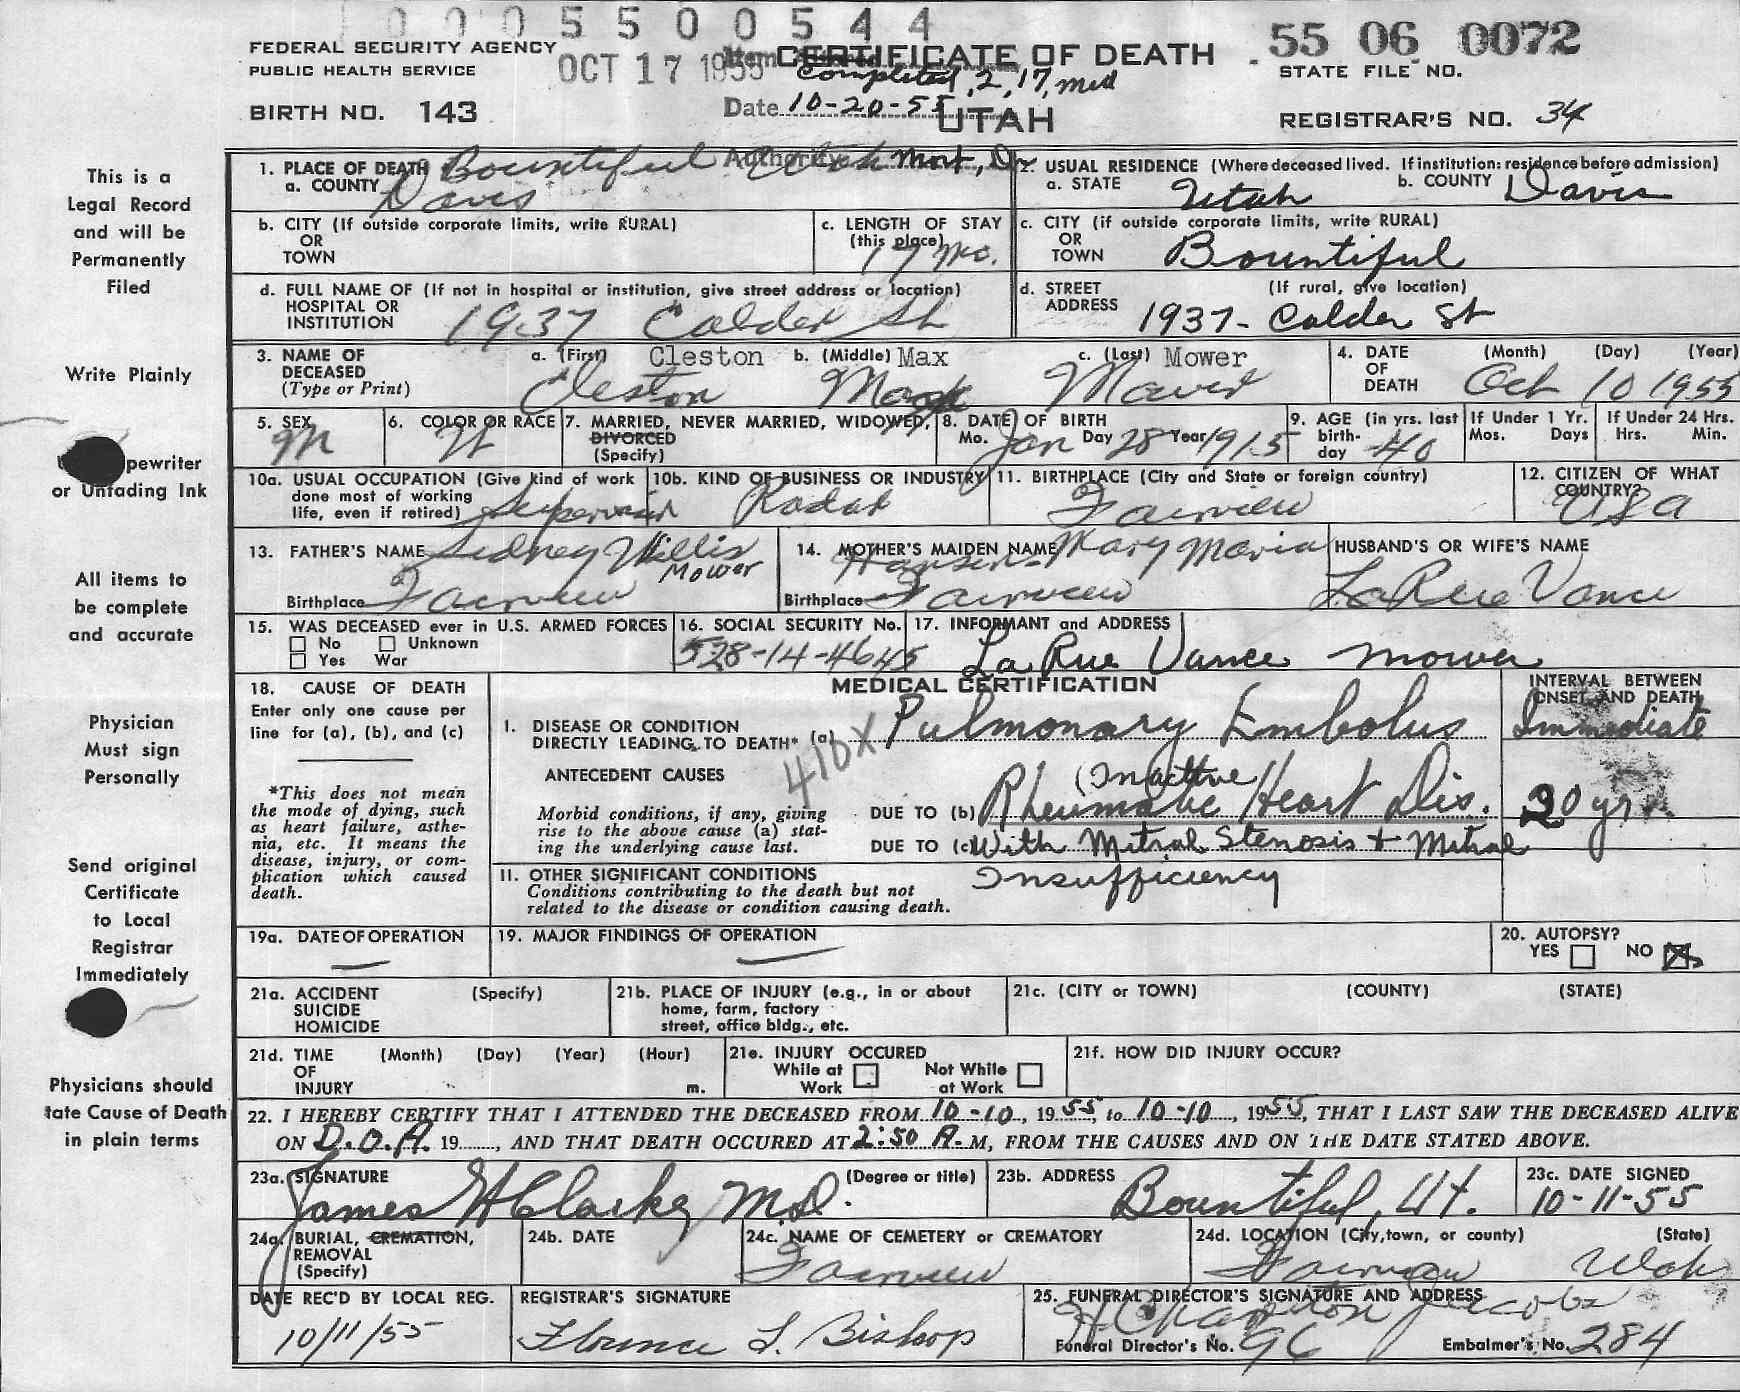 0005500544
FEDERAL SECURITY AGENCY
PUBLIC HEALTH SERVICE
OCT 17 1955
CERTIFICATE OF DEATH
Completed, 2, 17, med
Date 10-20-55
UTAH
55 06 0072
STATE FILE NO.
BIRTH NO. 143
REGISTRAR'S NO. 34
This is a
Legal Record
and will be
Permanently
Filed
Write Plainly
pewriter
or Unfading Ink
All items to
be complete
and accurate
Physician
Must sign
Personally
Send original
Certificate
to Local
Registrar
Immediately
Physicians should
tate Cause of Death
in plain terms
1. PLACE OF DEATH Bountiful Utah
Authority Mort, Dr
a. COUNTY Davis
2. USUAL RESIDENCE (Where deceased lived. If institution: residence before admission)
a. STATE Utah b. COUNTY Davis
b. CITY (If outside corporate limits, write RURAL)
OR
TOWN
c. LENGTH OF STAY
(this place)
17 mo.
c. CITY (if outside corporate limits, write RURAL)
OR
TOWN Bountiful
d. FULL NAME OF (If not in hospital or institution, give street address or location)
HOSPITAL OR
INSTITUTION 1937 Calder St
d. STREET (If rural, give location)
ADDRESS 1937- Calder St
3. NAME OF
DECEASED
(Type or Print)
a. (First) Cleston b. (Middle) Max c. (Last) Mower
Cleston Max Mower
4. DATE
OF
DEATH
(Month) (Day) (Year)
Oct 10 1955
5. SEX
M
6. COLOR OR RACE
W
7. MARRIED, NEVER MARRIED, WIDOWED,
DIVORCED
(Specify)
8. DATE OF BIRTH
Mo. Jan Day 28 Year 1915
9. AGE (in yrs. last
birth-
day 40
If Under 1 Yr.
Mos. Days
If Under 24 Hrs.
Hrs. Min.
10a. USUAL OCCUPATION (Give kind of work
done most of working
life, even if retired) Supervisor
10b. KIND OF BUSINESS OR INDUSTRY
Radar
11. BIRTHPLACE (City and State or foreign country)
Fairview
12. CITIZEN OF WHAT
COUNTRY?
USA
13. FATHER'S NAME Sidney Willis
Mower
Birthplace Fairview
14. MOTHER'S MAIDEN NAME Mary Maria
Hansen
Birthplace Fairview
HUSBAND'S OR WIFE'S NAME
LaRue Vance
15. WAS DECEASED ever in U.S. ARMED FORCES
No Unknown
Yes War
16. SOCIAL SECURITY No.
528-14-4645
17. INFORMANT and ADDRESS
La Rue Vance Mower
18. CAUSE OF DEATH
Enter only one cause per
line for (a), (b), and (c)
*This does not mean
the mode of dying, such
as heart failure, asthe-
nia, etc. It means the
disease, injury, or com-
plication which caused
death.
MEDICAL CERTIFICATION
INTERVAL BETWEEN
ONSET AND DEATH
I. DISEASE OR CONDITION
DIRECTLY LEADING TO DEATH* (a) Pulmonary Embolus Immediate
410X
ANTECEDENT CAUSES
Morbid conditions, if any, giving
rise to the above cause (a) stat-
ing the underlying cause last.
(Inactive
DUE TO (b) Rheumatic Heart Dis. 20 yrs.
DUE TO (c) With Mitral Stenosis + Mitral
Insufficiency
11. OTHER SIGNIFICANT CONDITIONS
Conditions contributing to the death but not
related to the disease or condition causing death.
19a. DATE OF OPERATION
19. MAJOR FINDINGS OF OPERATION
20. AUTOPSY?
YES NO X
21a. ACCIDENT (Specify)
SUICIDE
HOMICIDE
21b. PLACE OF INJURY (e.g., in or about
home, farm, factory
street, office bldg., etc.
21c. (CITY or TOWN) (COUNTY) (STATE)
21d. TIME (Month) (Day) (Year) (Hour)
OF
INJURY m.
21e. INJURY OCCURED
While at Not While
Work at Work
21f. HOW DID INJURY OCCUR?
22. I HEREBY CERTIFY THAT I ATTENDED THE DECEASED FROM 10-10, 1955, to 10-10, 1955, THAT I LAST SAW THE DECEASED ALIVE
ON D.O.A. 19......, AND THAT DEATH OCCURED AT 2:50 A. M, FROM THE CAUSES AND ON THE DATE STATED ABOVE.
23a. SIGNATURE (Degree or title)
James H Clarke M.D.
23b. ADDRESS
Bountiful, Ut.
23c. DATE SIGNED
10-11-55
24a. BURIAL, CREMATION,
REMOVAL
(Specify)
24b. DATE
24c. NAME OF CEMETERY or CREMATORY
Fairview
24d. LOCATION (City, town, or county) (State)
Fairview Utah
DATE REC'D BY LOCAL REG.
10/11/55
REGISTRAR'S SIGNATURE
Florence L. Bishop
25. FUNERAL DIRECTOR'S SIGNATURE AND ADDRESS
Jacobs
Funeral Director's No. 96 Embalmer's No. 284